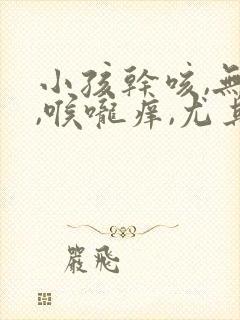 小孩幹咳,無
,喉嚨痒,尤其
嚴飛